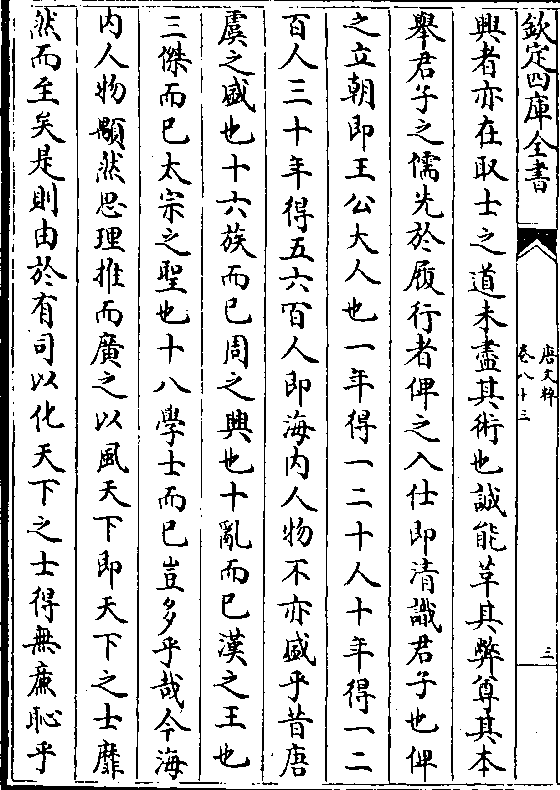 欽定四庫全書
唐文粹
卷八十三
三
興者亦在取士之道未盡其術也誠能革其弊尊其本
舉君子之儒先於履行者俾之入仕即清識君子也俾
之立朝即王公大人也一年得一二十人十年得一二
百人三十年得五六百人即海内人物不亦盛乎昔唐
虞之盛也十六族而已周之興也十亂而已漢之王也
三傑而已太宗之聖也十八學士而已豈多乎哉今海
内人物顒然思理推而廣之以風天下即天下之士靡
然而至矣是則由於有司以化天下之士得無廉恥乎